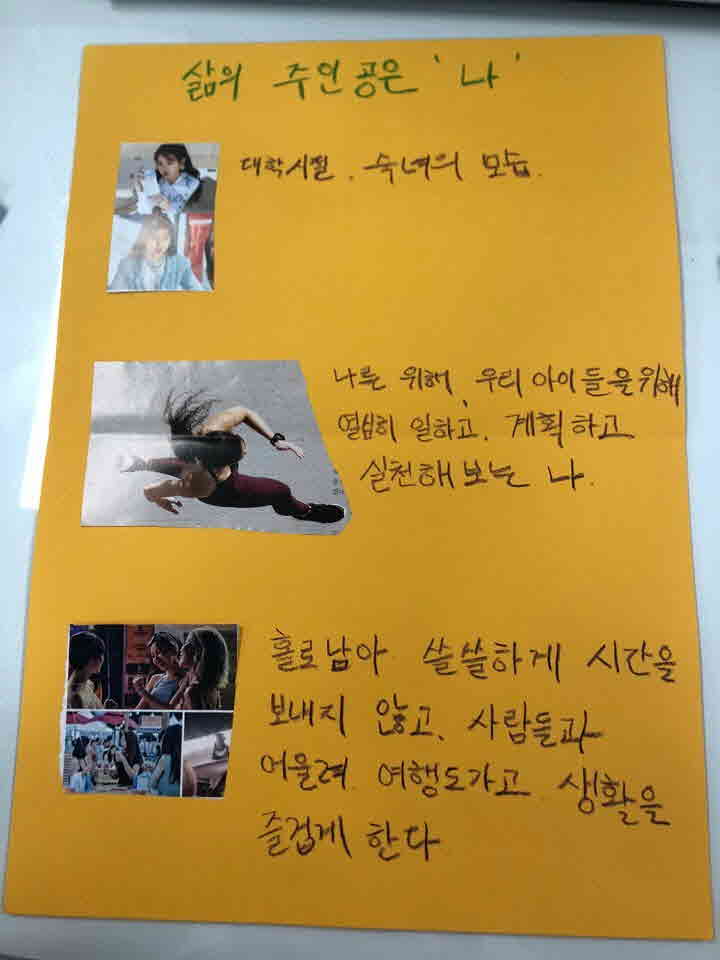 삶의 주인공은 '나'
대학시절, 숙녀의 모습.
나를 위해, 우리 아이들을위해
열심히 일하고, 계획하고
실천해보는 나.
홀로남아 쓸쓸하게 시간을
보내지 않고, 사람들과
어울려 여행도가고 생활을
즐겁게 한다